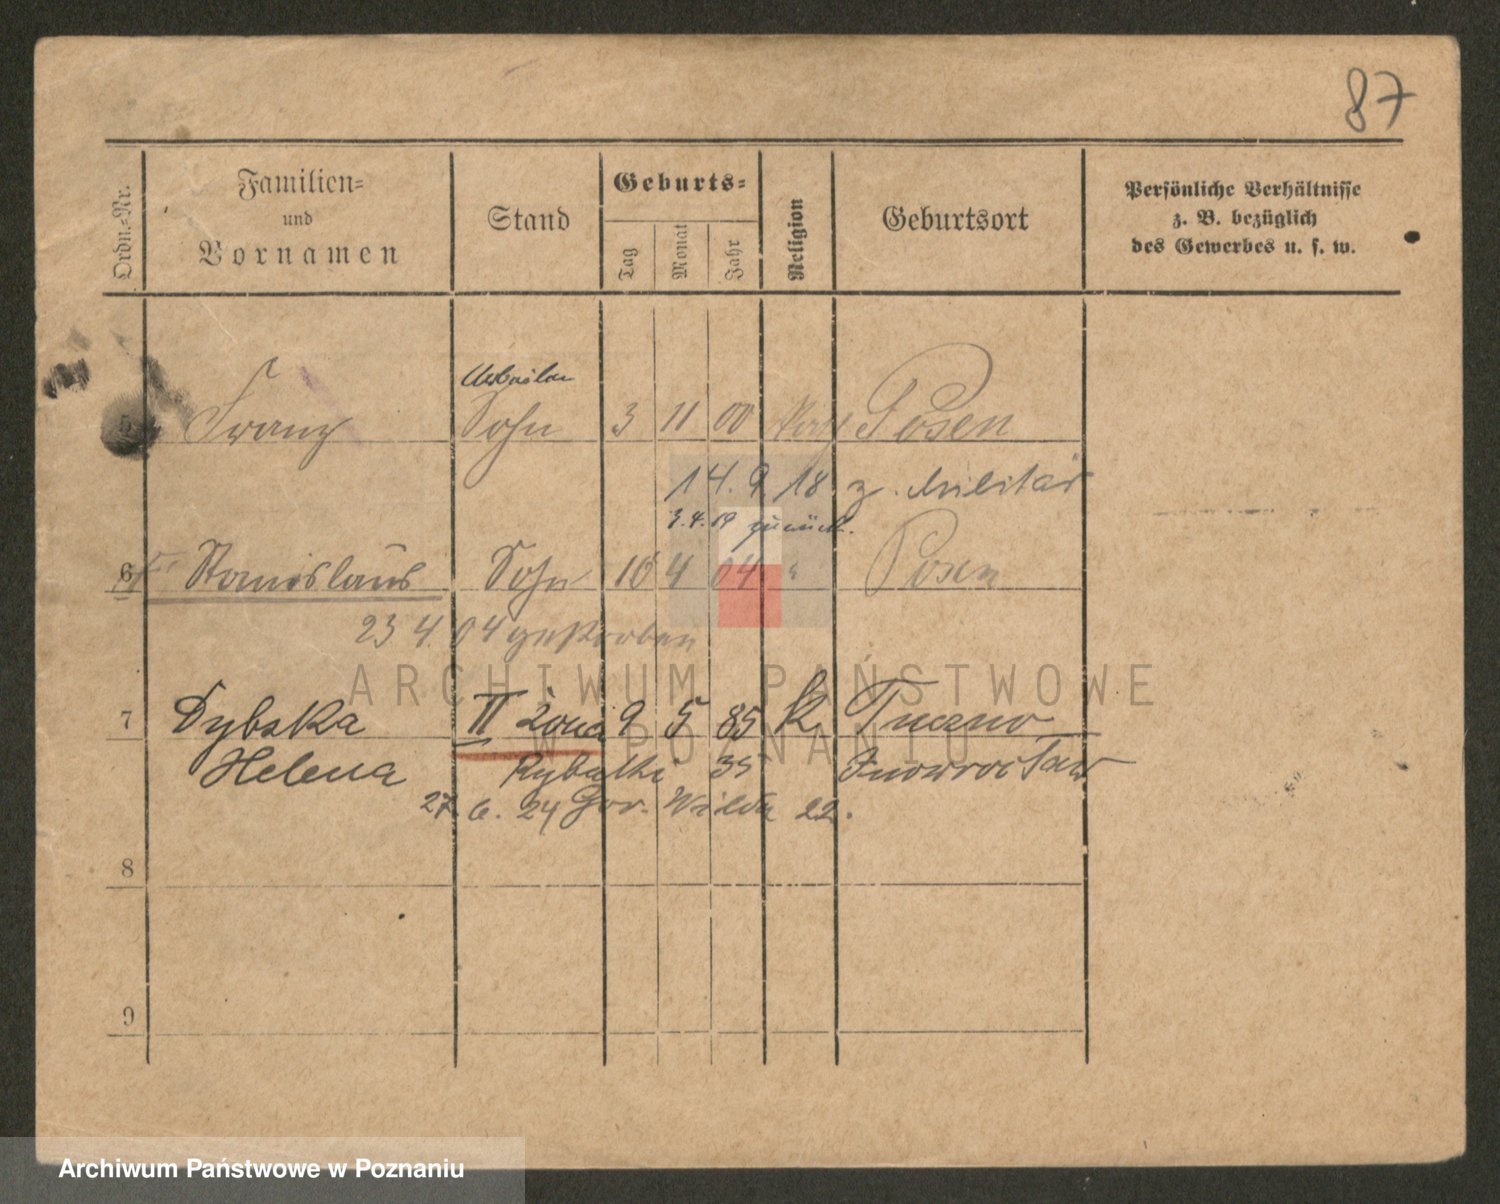 87
Ordn.-Nr.
Familien-
und
Vornamen
Stand
Geburts-
Tag
Monat
Jahr
Religion
Geburtsort
Persönliche Verhältnisse
z. B. bezüglich
des Gewerbes u. s. w.
5 Franz Sohn 3 11 00 Kath Posen
14. 9. 18 z. Militär
3.4.19 zurück.
6 Stanislaus Sohn 10 4 04 " Posen
23 4. 04 gestorben
7 Dybska II żona 9 5 85 k Tuczno
Helena Rybatki 35 Inowrocław
27. 6. 24 Gór. Wilda 22.
8
9
ARCHIWUM PAŃSTWOWE
W POZNANIU
Archiwum Państwowe w Poznaniu